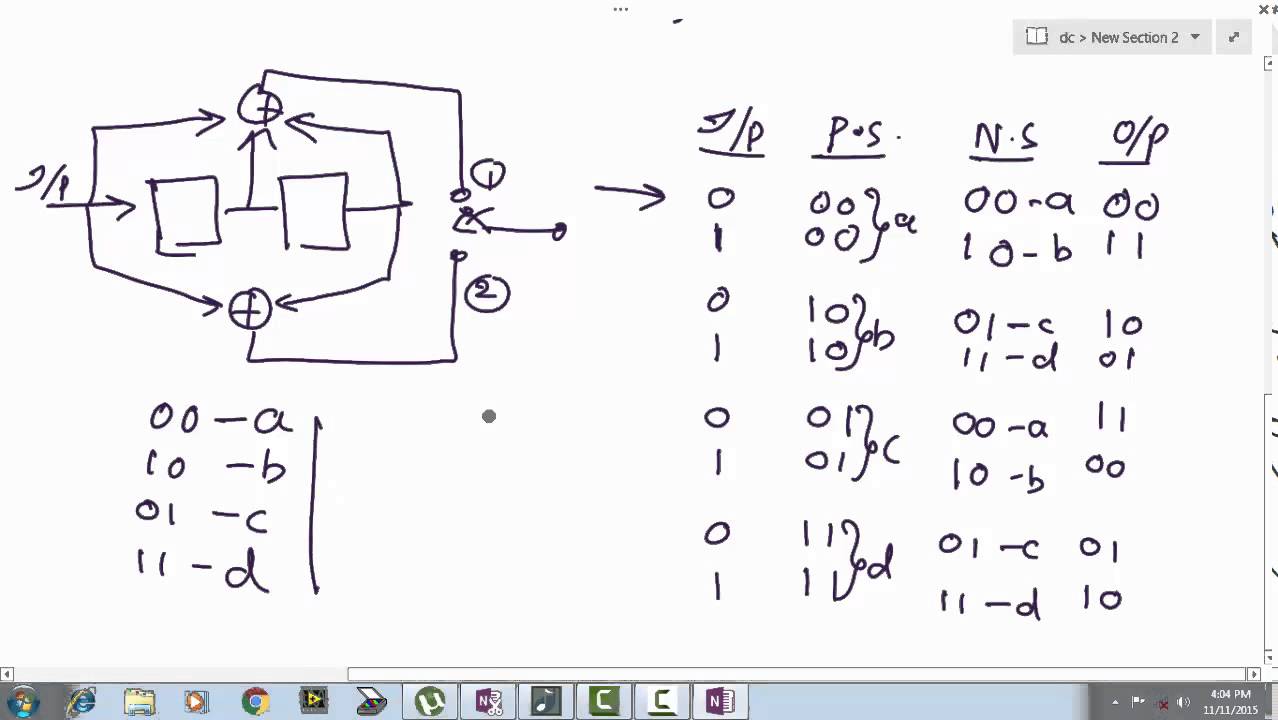 dc > New Section 2
I/P P.S. N.S O/P
0 00 00-a 00
1 00 a 10-b 11
0 10 01-c 10
1 10 b 11-d 01
0 01 00-a 11
1 01 c 10-b 00
0 11 01-c 01
1 11 d 11-d 10
+
I/P
1
2
+
00-a
10-b
01-c
11-d
4:04 PM
11/11/2015